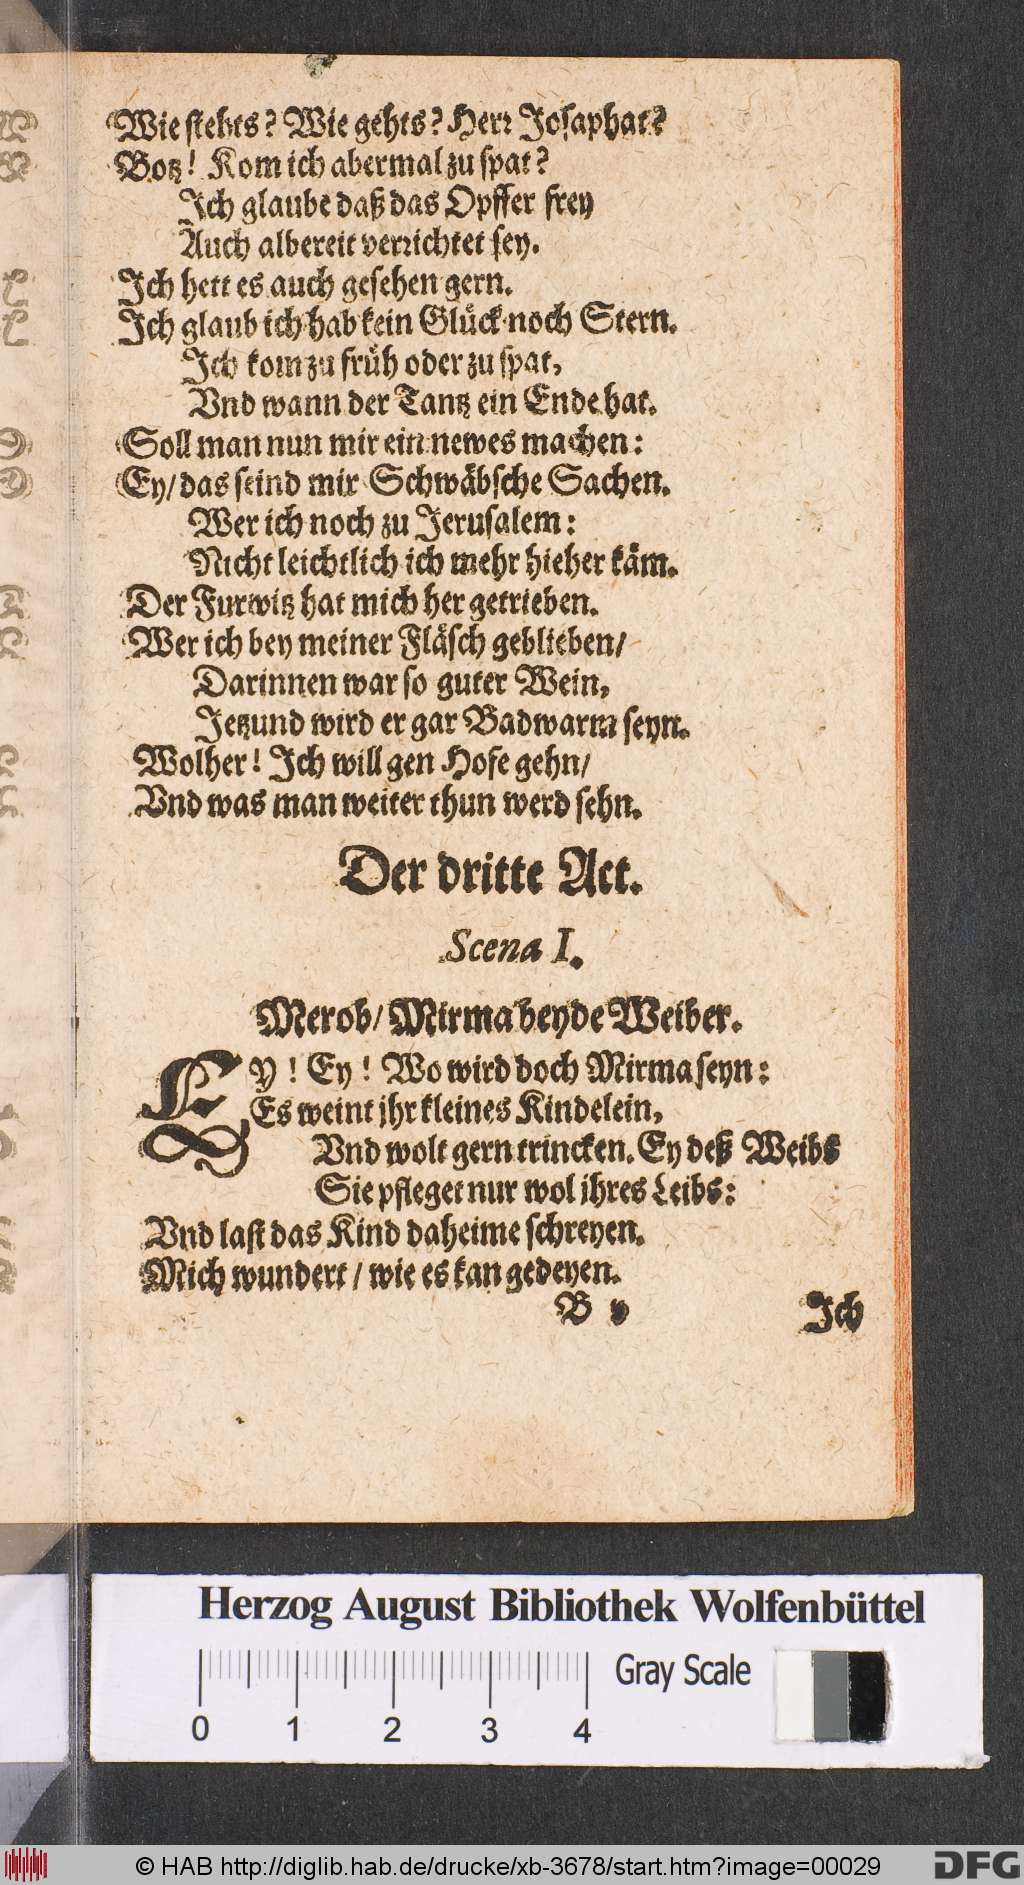 Wie stehts? Wie gehts? Herr Josaphat?
Botz! Kom ich abermal zu spat?
Ich glaube daß das Opffer frey
Auch albereit verrichtet sey.
Ich hett es auch gesehen gern.
Ich glaub ich hab kein Glück noch Stern.
Ich kom zu früh oder zu spat,
Vnd wann der Tantz ein Ende hat.
Soll man nun mir ein newes machen:
Ey/ das seind mir Schwäbsche Sachen.
Wer ich noch zu Jerusalem:
Nicht leichtlich ich mehr hieher käm.
Der Furwitz hat mich her getrieben.
Wer ich bey meiner Fläsch geblieben/
Darinnen war so guter Wein,
Jetzund wird er gar Badwarm seyn.
Wolher! Ich will gen Hofe gehn/
Vnd was man weiter thun werd sehn.
Der dritte Act.
Scena I.
Merob/ Mirma beyde Weiber.
EY! Ey! Wo wird doch Mirma seyn:
Es weint jhr kleines Kindelein,
Vnd wolt gern trincken. Ey deß Weibs
Sie pfleget nur wol jhres Leibs:
Vnd last das Kind daheime schreyen.
Mich wundert/ wie es kan gedeyen.
B v Ich
Herzog August Bibliothek Wolfenbüttel
Gray Scale
0 1 2 3 4
© HAB http://diglib.hab.de/drucke/xb-3678/start.htm?image=00029
DFG